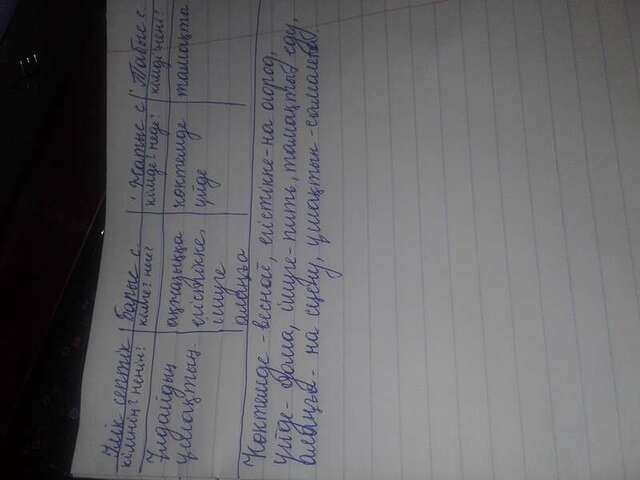 Ілік септік Барыс с. Жатыс с. Табыс с.
кімнің? ненің? кімге? неге? кімде? неде? кімді? нені?
Ұлдайдың ақжазыққа көктемде тамақты
ұшақтың егістікке, үйде
ішуге
алаңға
Көктемде - весной, егістікке - на огород,
үйде - дома, ішуге - пить, тамақты еду,
алаңға - на сцену, ұшақтың - самолета